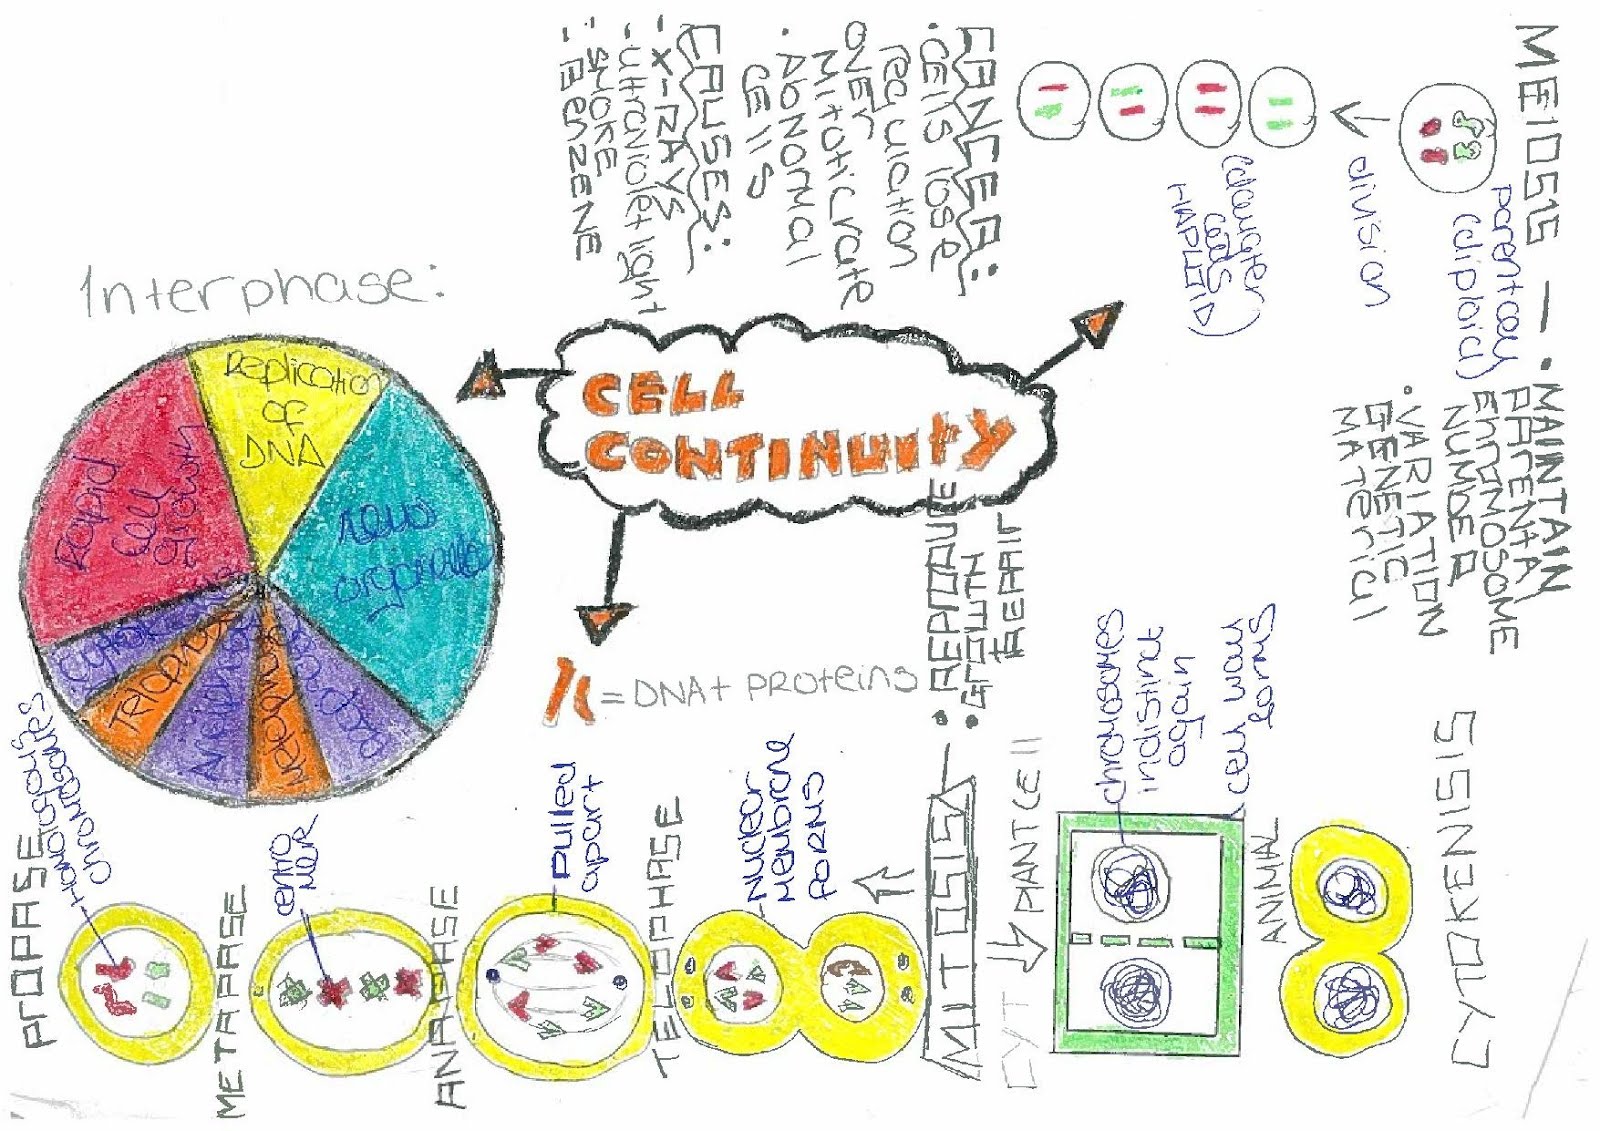 CELL
CONTINUITY
Interphase:
Replication
OF
DNA
new
organelle
Rapid
Cell
growth
= DNA+ PROteins
CANCER:
• Cells lose
requlation
OVER
Mitotic rate
• Abnormal
CELLS
CAUSES:
- X-RAYS
- ultraviolet light
- SMOKE
- BENZENE
MEIOSIS —
• MAINTAIN
PARENTAL
CHROMOSOME
NUMBER
• VARIATION
GENETIC
MATERIAL
(diploid)
division
(daughter
cells
HAPLOID)
MITOSIS —
• REPRODUCE
• GROWTH
+ REPAIR
PROPASE
Homologous
chromosomes
METAPASE
ANAPASE
pulled
apart
TELOPHASE
nuclear
membrane
forms
CYTOKENISIS
PLANT CELL
chromosomes
indistinct
again
cell wall
forms
ANIMAL